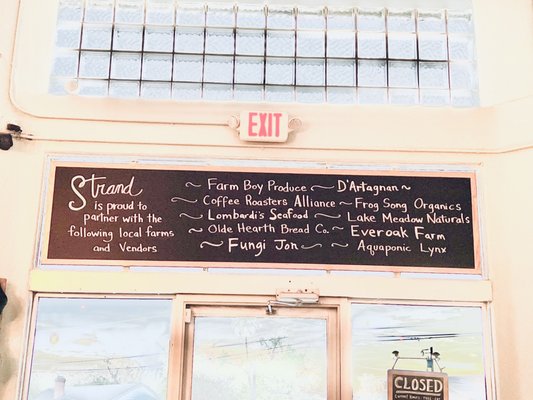 EXIT
Strand
is proud to
partner with the
following local farms
and Vendors
~ Farm Boy Produce
~ Coffee Roasters Alliance
~ Lombardi's Seafood
~ Olde Hearth Bread Co.
~ Fungi Jon ~
~ D'Artagnan ~
~ Frog Song Organics
~ Lake Meadow Naturals
~ Everoak Farm
~ Aquaponic Lynx
CLOSED